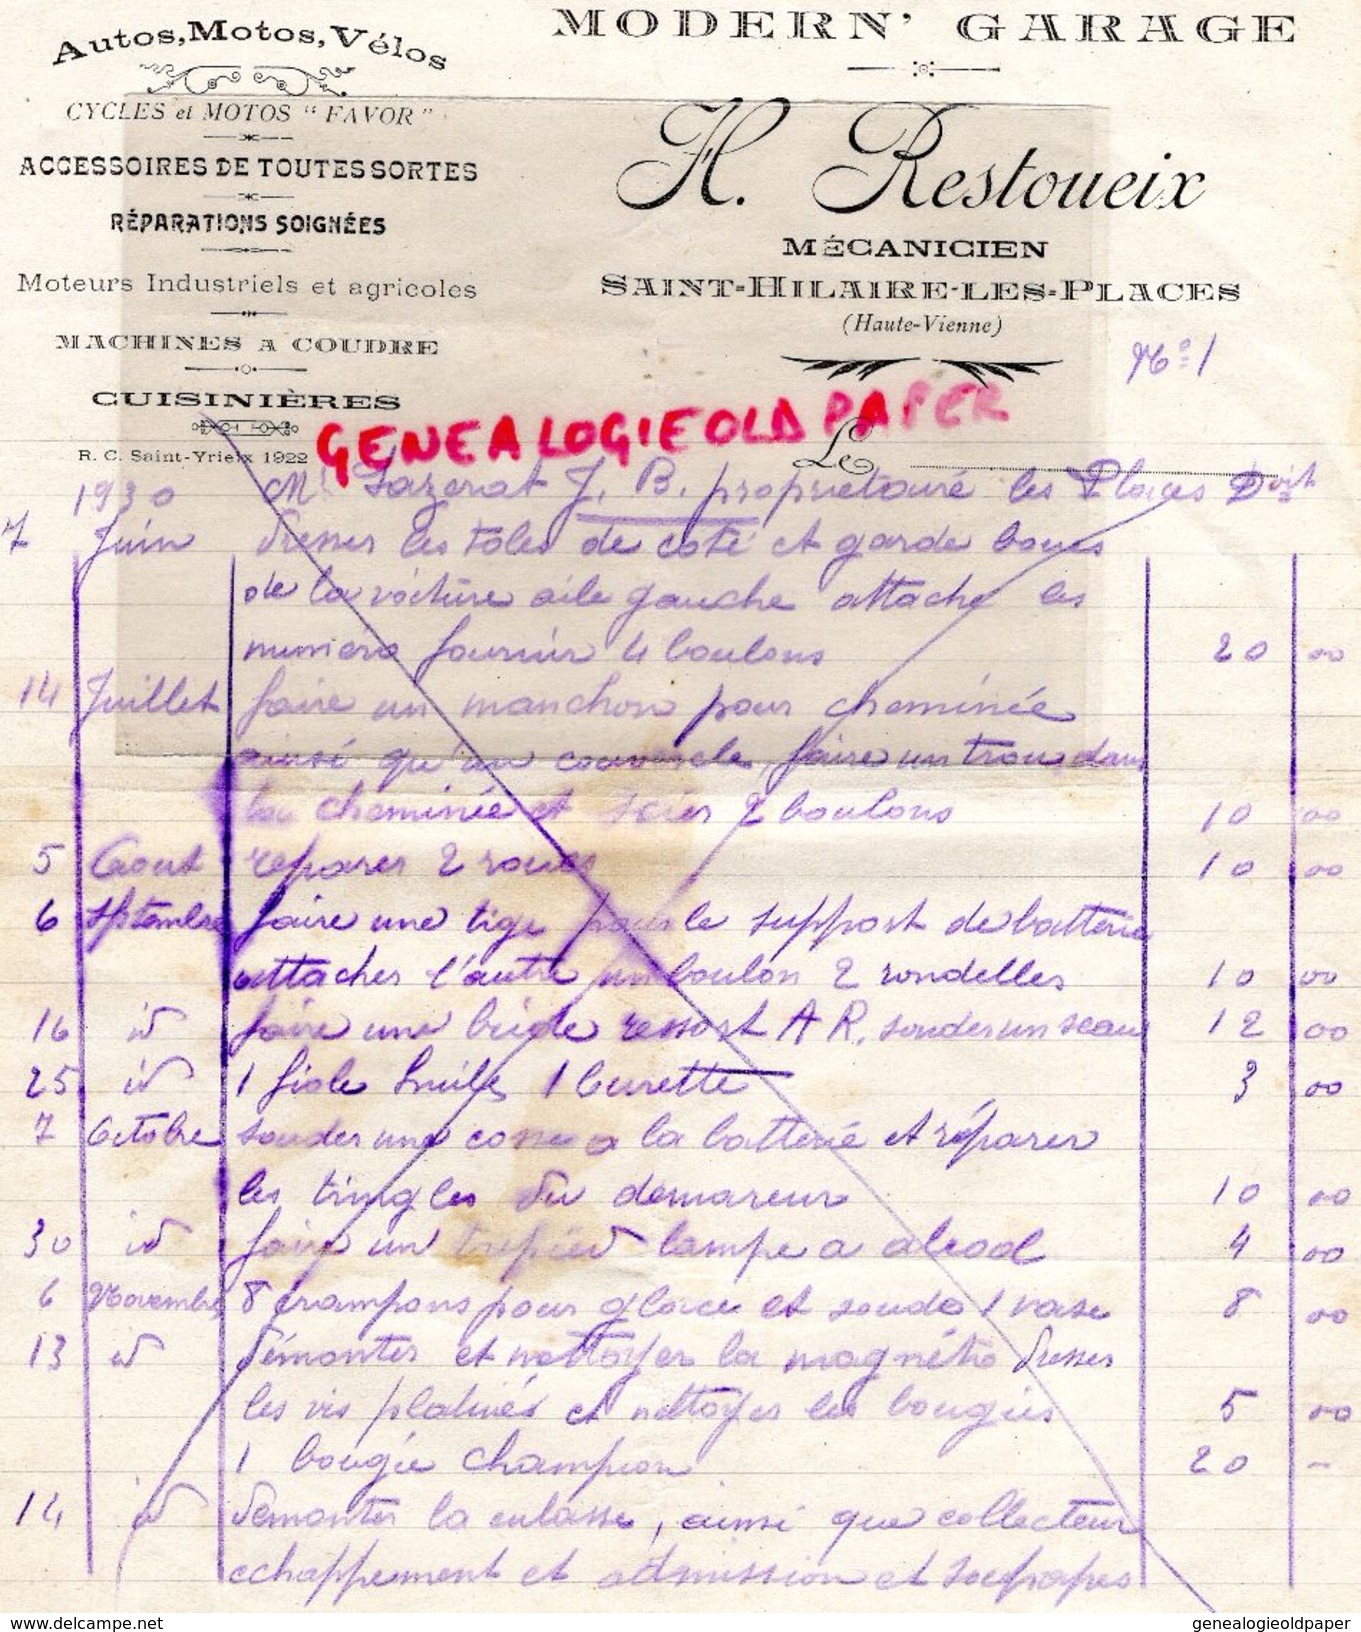 Autos, Motos, Vélos
CYCLES et MOTOS "FAVOR"
ACCESSOIRES DE TOUTES SORTES
RÉPARATIONS SOIGNÉES
Moteurs Industriels et agricoles
MACHINES A COUDRE
CUISINIÈRES
R. C. Saint-Yrieix 1922
MODERN' GARAGE
H. Restoueix
MÉCANICIEN
SAINT-HILAIRE-LES-PLACES
(Haute-Vienne)
No 1
GENEALOGIEOLD PAPER
Le
1930 Mr Lazerat J. B. propriétaire les Places Doit
7 Juin dresser les tôles de coté et garde boues
de la voiture aile gauche attache les
numero fournir 4 boulons 20 00
14 Juillet faire un manchon pour cheminée
ainsi qu'un couvercle, faire un trou dans
la cheminée et scier 2 boulons 10 00
5 Aout reparer 2 roues 10 00
6 Septembre faire une tige pour le support de batterie
attacher l'autre un boulon 2 rondelles 10 00
16 id faire une bride ressort AR, souder un seau 12 00
25 id 1 fiole huile 1 burette 3 00
7 Octobre souder une cosse a la batterie et réparer
les tringles du demareur 10 00
30 id faire un trepied lampe a alcool 4 00
6 Novembre 8 crampons pour glace et soudé 1 vase 8 00
13 id démonter et nettoyer la magnéto dresser
les vis platinés et nettoyer les bougies 5 00
1 bougie champion 20 -
14 id demonter la culasse, ainsi que collecteur
echappement et admission et soupapes
www.delcampe.net
genealogieoldpaper